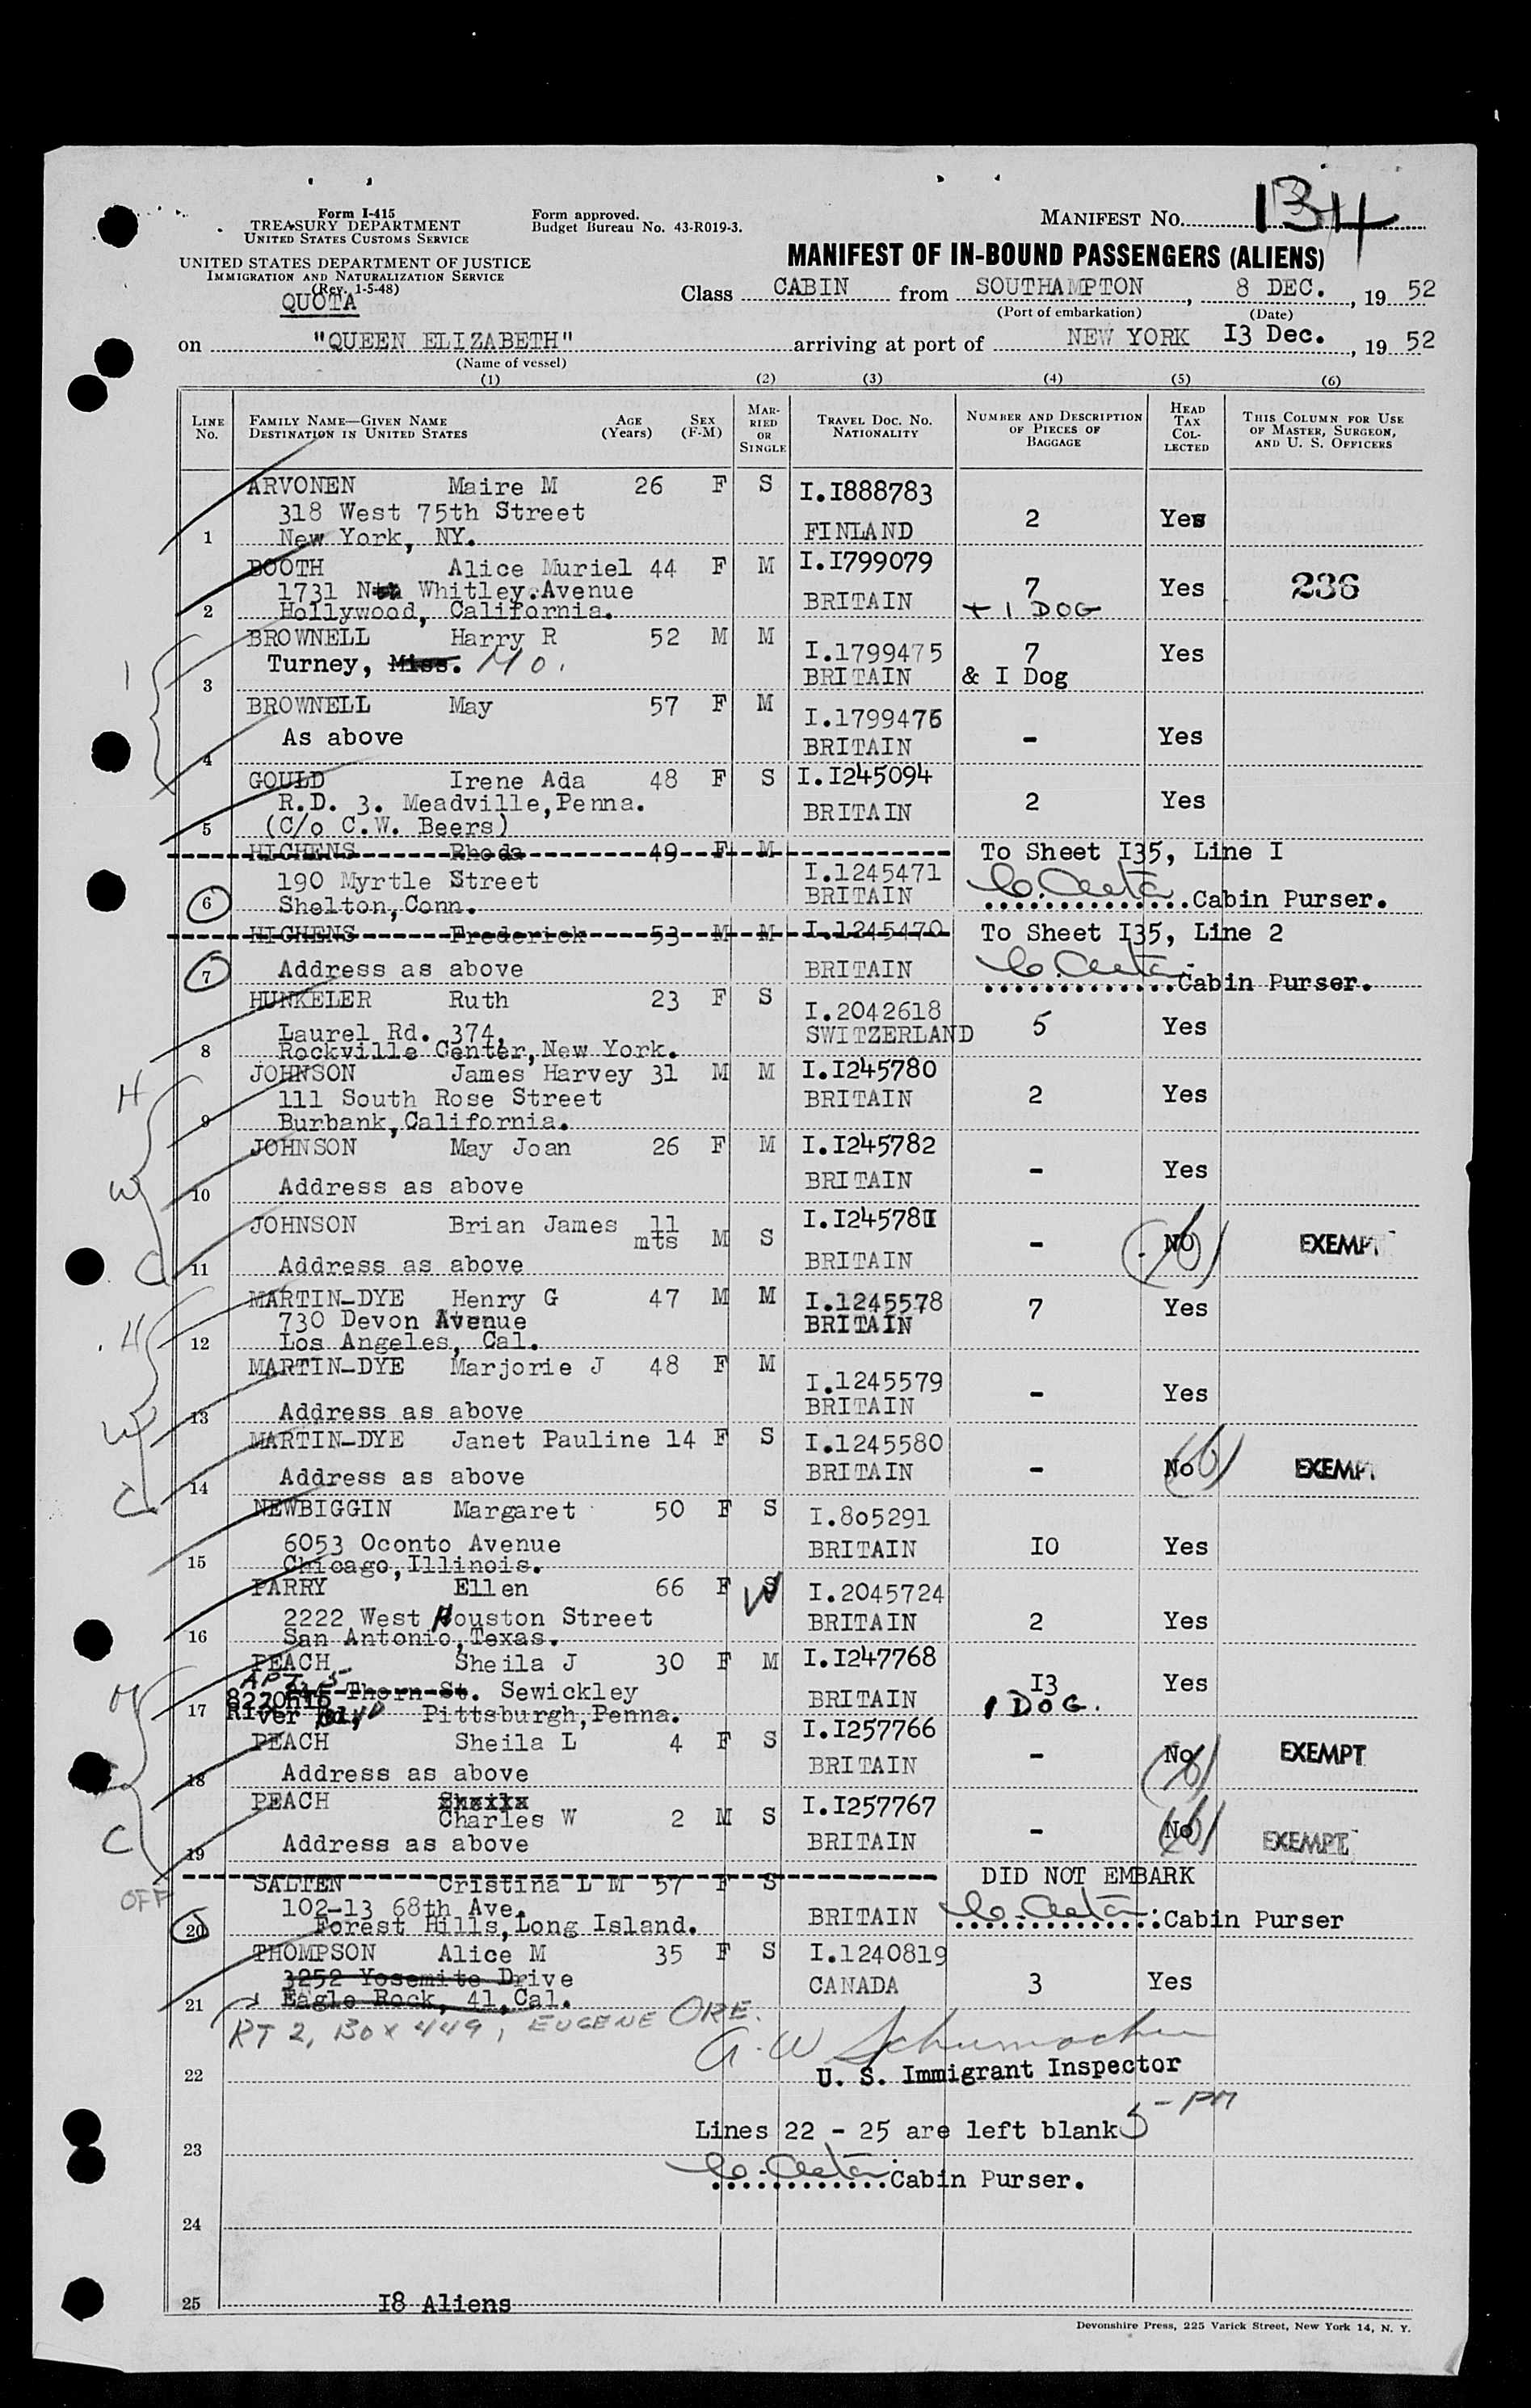 134
Form I-415
TREASURY DEPARTMENT
UNITED STATES CUSTOMS SERVICE
Form approved.
Budget Bureau No. 43-R019-3.
MANIFEST NO.
UNITED STATES DEPARTMENT OF JUSTICE
IMMIGRATION AND NATURALIZATION SERVICE
(Rev. 1-5-48)
QUOTA
MANIFEST OF IN-BOUND PASSENGERS (ALIENS)
Class CABIN from SOUTHAMPTON, 8 DEC., 19 52
(Port of embarkation) (Date)
on "QUEEN ELIZABETH" arriving at port of NEW YORK I3 Dec., 19 52
(Name of vessel)
(1) (2) (3) (4) (5) (6)
LINE No. FAMILY NAME—GIVEN NAME DESTINATION IN UNITED STATES AGE (Years) SEX (F-M) MARRIED OR SINGLE TRAVEL DOC. NO. NATIONALITY NUMBER AND DESCRIPTION OF PIECES OF BAGGAGE HEAD TAX COLLECTED THIS COLUMN FOR USE OF MASTER, SURGEON, AND U. S. OFFICERS
ARVONEN Maire M 26 F S I.I888783
318 West 75th Street 2 Yes
1 New York, NY. FINLAND
BOOTH Alice Muriel 44 F M I.I799079
1731 Nth Whitley.Avenue 7 Yes 236
2 Hollywood, California. BRITAIN + 1 DOG
BROWNELL Harry R 52 M M I.1799475 7 Yes
Turney, Miss. Mo.
3 BRITAIN & I Dog
BROWNELL May 57 F M I.1799476
As above - Yes
4 BRITAIN
GOULD Irene Ada 48 F S I.I245094
R.D. 3. Meadville,Penna. 2 Yes
5 (C/o C.W. Beers) BRITAIN
HICHENS Rhoda 49 F M To Sheet I35, Line I
190 Myrtle Street I.1245471
6 Shelton,Conn. BRITAIN Cabin Purser.
HICHENS Frederick 53 M M I.1245470 To Sheet I35, Line 2
7 Address as above BRITAIN Cabin Purser.
HUNKELER Ruth 23 F S I.2042618
Laurel Rd. 374, SWITZERLAND 5 Yes
8 Rockville Center,New York.
JOHNSON James Harvey 31 M M I.I245780
111 South Rose Street BRITAIN 2 Yes
9 Burbank,California.
H
JOHNSON May Joan 26 F M I.I245782
- Yes
W
10 Address as above BRITAIN
JOHNSON Brian James 11 mts M S I.I245781
- NO EXEMPT
C
11 Address as above BRITAIN
MARTIN-DYE Henry G 47 M M I.1245578 7 Yes
730 Devon Avenue BRITAIN
H
12 Los Angeles, Cal.
MARTIN-DYE Marjorie J 48 F M I.1245579
- Yes
W
13 Address as above BRITAIN
MARTIN-DYE Janet Pauline 14 F S I.1245580
Address as above BRITAIN - No EXEMPT
14
C
NEWBIGGIN Margaret 50 F S I.805291
6053 Oconto Avenue BRITAIN IO Yes
15 Chicago,Illinois.
PARRY Ellen 66 F S W I.2045724
2222 West Houston Street BRITAIN 2 Yes
16 San Antonio,Texas.
PEACH Sheila J 30 F M I.I247768
APT 5
Thorn St. Sewickley BRITAIN I3 Yes
17 822Ohio River Blvd Pittsburgh,Penna. 1 DOG.
PEACH Sheila L 4 F S I.I257766
18 Address as above BRITAIN - No EXEMPT
PEACH Sheila
Charles W 2 M S I.I257767
C
19 Address as above BRITAIN - No EXEMPT
OFF
SALTEN Cristina L M 57 F S DID NOT EMBARK
102-13 68th Ave.
20 Forest Hills,Long Island. BRITAIN Cabin Purser
THOMPSON Alice M 35 F S I.1240819
3252 Yosemite Drive CANADA 3 Yes
21 Eagle Rock, 41,Cal.
RT 2, BOX 449, EUGENE ORE.
A.W Schumacher
22 U. S. Immigrant Inspector
5-PM
Lines 22 - 25 are left blank
23
Cabin Purser.
24
25 I8 Aliens
Devonshire Press, 225 Varick Street, New York 14, N. Y.